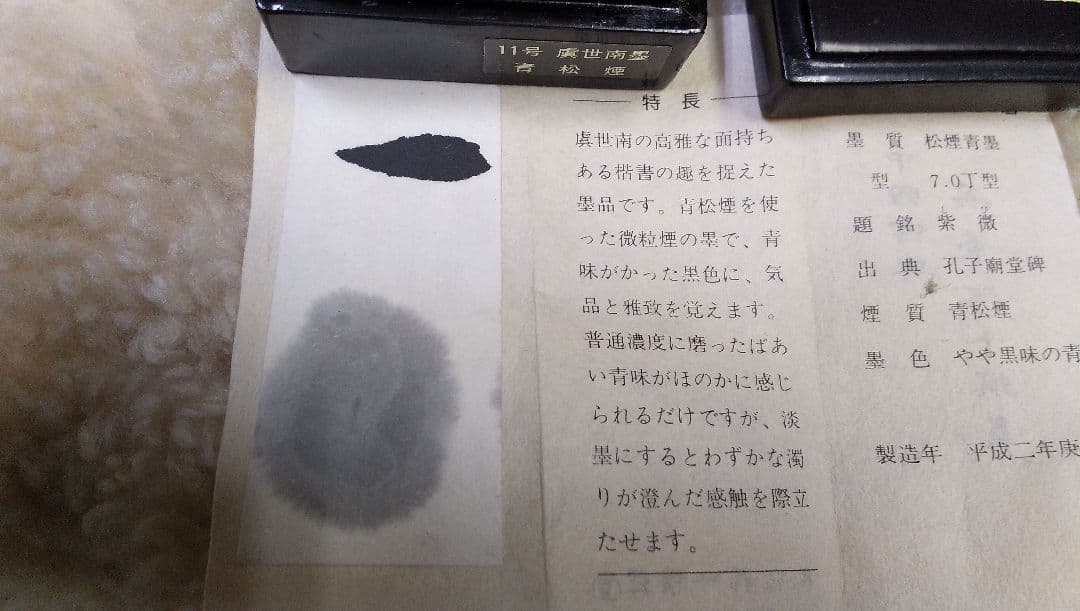 11号 虞世南墨
青松煙
特長
虞世南の高雅な面持ち
ある楷書の趣を捉えた
墨品です。青松煙を使
った微粒煙の墨で、青
味がかった黒色に、気
品と雅致を覚えます。
普通濃度に磨ったばあ
い青味がほのかに感じ
られるだけですが、淡
墨にするとわずかな濁
りが澄んだ感触を際立
たせます。
墨質 松煙青墨
型 7.0丁型
題銘 紫微
出典 孔子廟堂碑
煙質 青松煙
墨色 やや黒味の青
製造年 平成二年庚